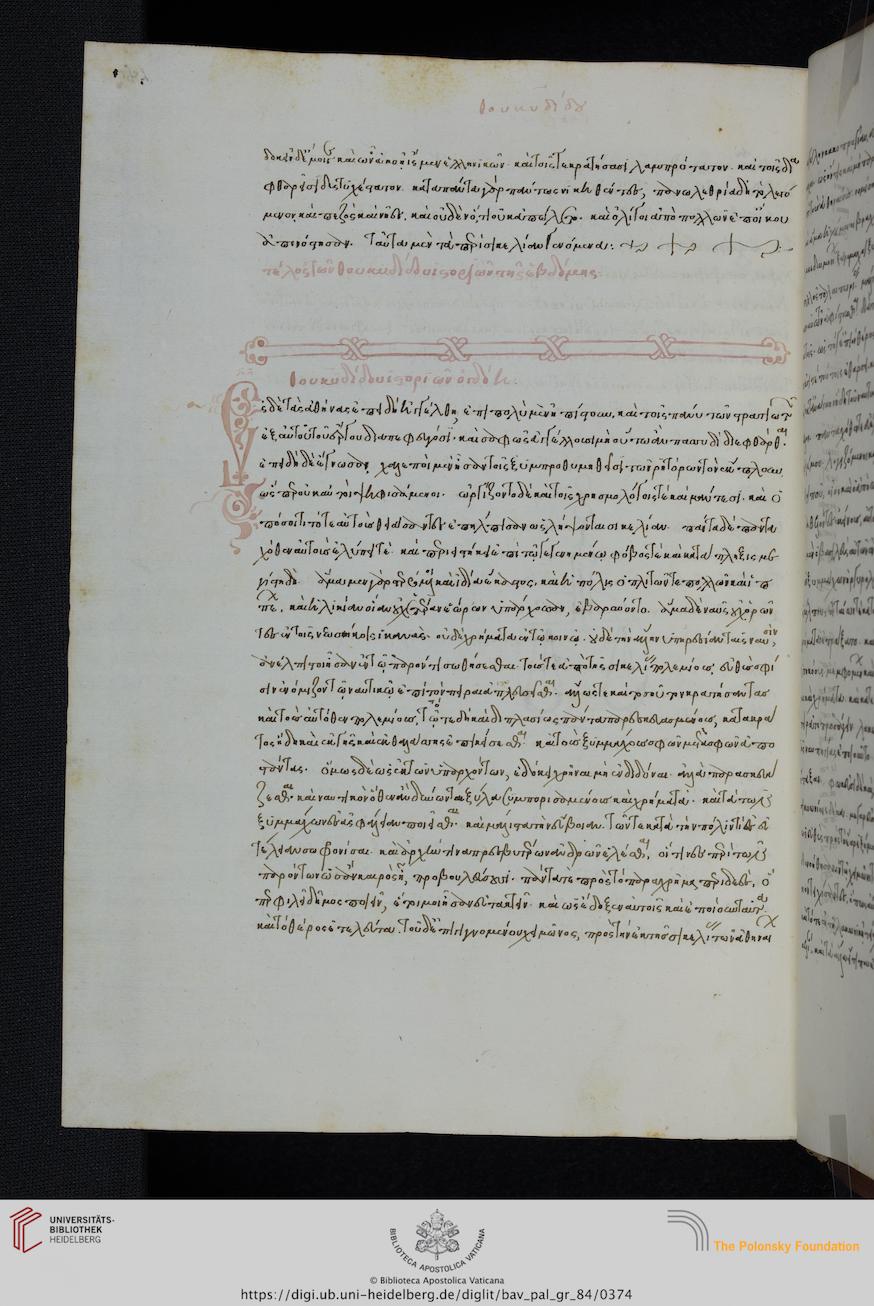 θουκυδίδου
δοκεῖν δέ μοι καὶ ὧν ἀκοῇ ἴσμεν ἑλληνικῶν. καὶ τοῖς τε κρατήσασι λαμπρότατον. καὶ τοῖς δια
φθαρεῖσι δυστυχέστατον. κατὰ πάντα γὰρ πάντως νικηθέντες, πανωλεθρία δὴ τὸ λεγό
μενον καὶ πεζὸς καὶ νῆες. καὶ οὐδὲν ὅ,τι οὐκ ἀπώλετο. καὶ ὀλίγοι ἀπὸ πολλῶν ἐπ' οἴκου
ἀπενόστησαν. ταῦτα μὲν τὰ περὶ σικελίαν γενόμενα:
τέλος τῶν θουκυδίδου ἱστοριῶν τῆς ἑβδόμης:
θουκυδίδου ἱστοριῶν ὀγδόη:
Ἐς δὲ τὰς ἀθήνας ἐπειδὴ ἠγγέλθη, ἐπὶ πολὺ μὲν ἠπίστουν, καὶ τοῖς πάνυ τῶν στρατιωτῶν
ἐξ αὐτοῦ τοῦ ἔργου διαπεφευγόσι. καὶ σαφῶς ἀγγέλλουσι μὴ οὕτω ἂν πασσυδὶ διεφθάρθαι.
ἐπειδὴ δὲ ἔγνωσαν, χαλεποὶ μὲν ἦσαν τοῖς ξυμπροθυμηθεῖσι τῶν ῥητόρων τὸν ἔκπλουν,
ὥσπερ οὐκ αὐτοὶ ψηφισάμενοι. ὠργίζοντο δὲ καὶ τοῖς χρησμολόγοις τὲ καὶ μάντεσι. καὶ ὁ
πόσοι τί τότε αὐτοὺς θειάσαντες ἐπήλπισαν ὡς λήψονται σικελίαν. πάντα δὲ πάντα
χόθεν αὐτοὺς ἐλύπει τὲ. καὶ περιειστήκει ἐπὶ τῷ γεγενημένῳ φόβος τὲ καὶ κατάπληξις με
γίστη δὴ. ἅμα μὲν γὰρ στερόμενοι καὶ ἰδία ἕκαστος, καὶ ἡ πόλις ὁπλιτῶν τε πολλῶν καὶ ἱπ
πέων, καὶ ἡλικίας οἵαν οὐχ ἑτέραν ἑώρων ὑπάρχουσαν, ἐβαρύνοντο. ἅμα δὲ ναῦς οὐχ ὁρῶν
τες ἐν τοῖς νεωσοίκοις ἱκανὰς. οὐδὲ χρήματα ἐν τῷ κοινῷ. οὐδὲ τὴν ἄλλην ὑπηρεσίαν ταῖς ναυσὶν,
ἀνέλπιστοι ἦσαν ἐν τῷ παρόντι σωθήσεσθαι. τούς τε ἀπὸ τῆς σικελίας πολεμίους, εὐθὺς σφί
σιν ἐνόμιζον τῷ ναυτικῷ ἐπὶ τὸν πειραιᾶ πλευσεῖσθαι. ἄλλως τε καὶ τοσοῦτον κρατήσαντας
καὶ τοὺς αὐτόθεν πολεμίους, τότε δὴ καὶ διπλασίως πάντα παρεσκευασμένους, κατακρά
τος ἤδη καὶ ἐκ γῆς καὶ ἐκ θαλάσσης ἐπικείσεσθαι. καὶ τοὺς ξυμμάχους σφῶν μετ' αὐτῶν ἀπο
στάντας. ὅμως δὲ ὡς ἐκ τῶν ὑπαρχόντων, ἐδόκει χρῆναι μὴ ἐνδιδόναι. ἀλλὰ παρασκευά
ζεσθαι καὶ ναυτικὸν ὅθεν ἂν δύνωνται ξύλα ξυμπορισαμένους καὶ χρήματα. καὶ τὰ τῶν
ξυμμάχων ἐς ἀσφάλειαν ποιεῖσθαι. καὶ μάλιστα τὴν εὔβοιαν. τῶν τε κατὰ τὴν πόλιν τι ἐς εὐ
τέλειαν σωφρονίσαι. καὶ ἀρχήν τινα πρεσβυτέρων ἀνδρῶν ἑλέσθαι, οἵτινες περὶ τῶν
παρόντων ὡς ἂν καιρὸς ᾖ, προβουλεύσουσι. πάντα τὲ πρὸς τὸ παραχρῆμα περιδεὲς, ὅ
περ φιλεῖ δῆμος ποιεῖν, ἑτοῖμοι ἦσαν εὐτακτεῖν. καὶ ὡς ἔδοξεν αὐτοῖς καὶ ἐποίουν ταῦτα.
καὶ τὸ θέρος ἐτελεύτα. τοῦ δ' ἐπιγιγνομένου χειμῶνος, πρὸς τὴν ἐκ τῆς σικελίας τῶν ἀθηναί
UNIVERSITÄTS-
BIBLIOTHEK
HEIDELBERG
BIBLIOTECA APOSTOLICA VATICANA
The Polonsky Foundation
© Biblioteca Apostolica Vaticana
https://digi.ub.uni-heidelberg.de/diglit/bav_pal_gr_84/0374